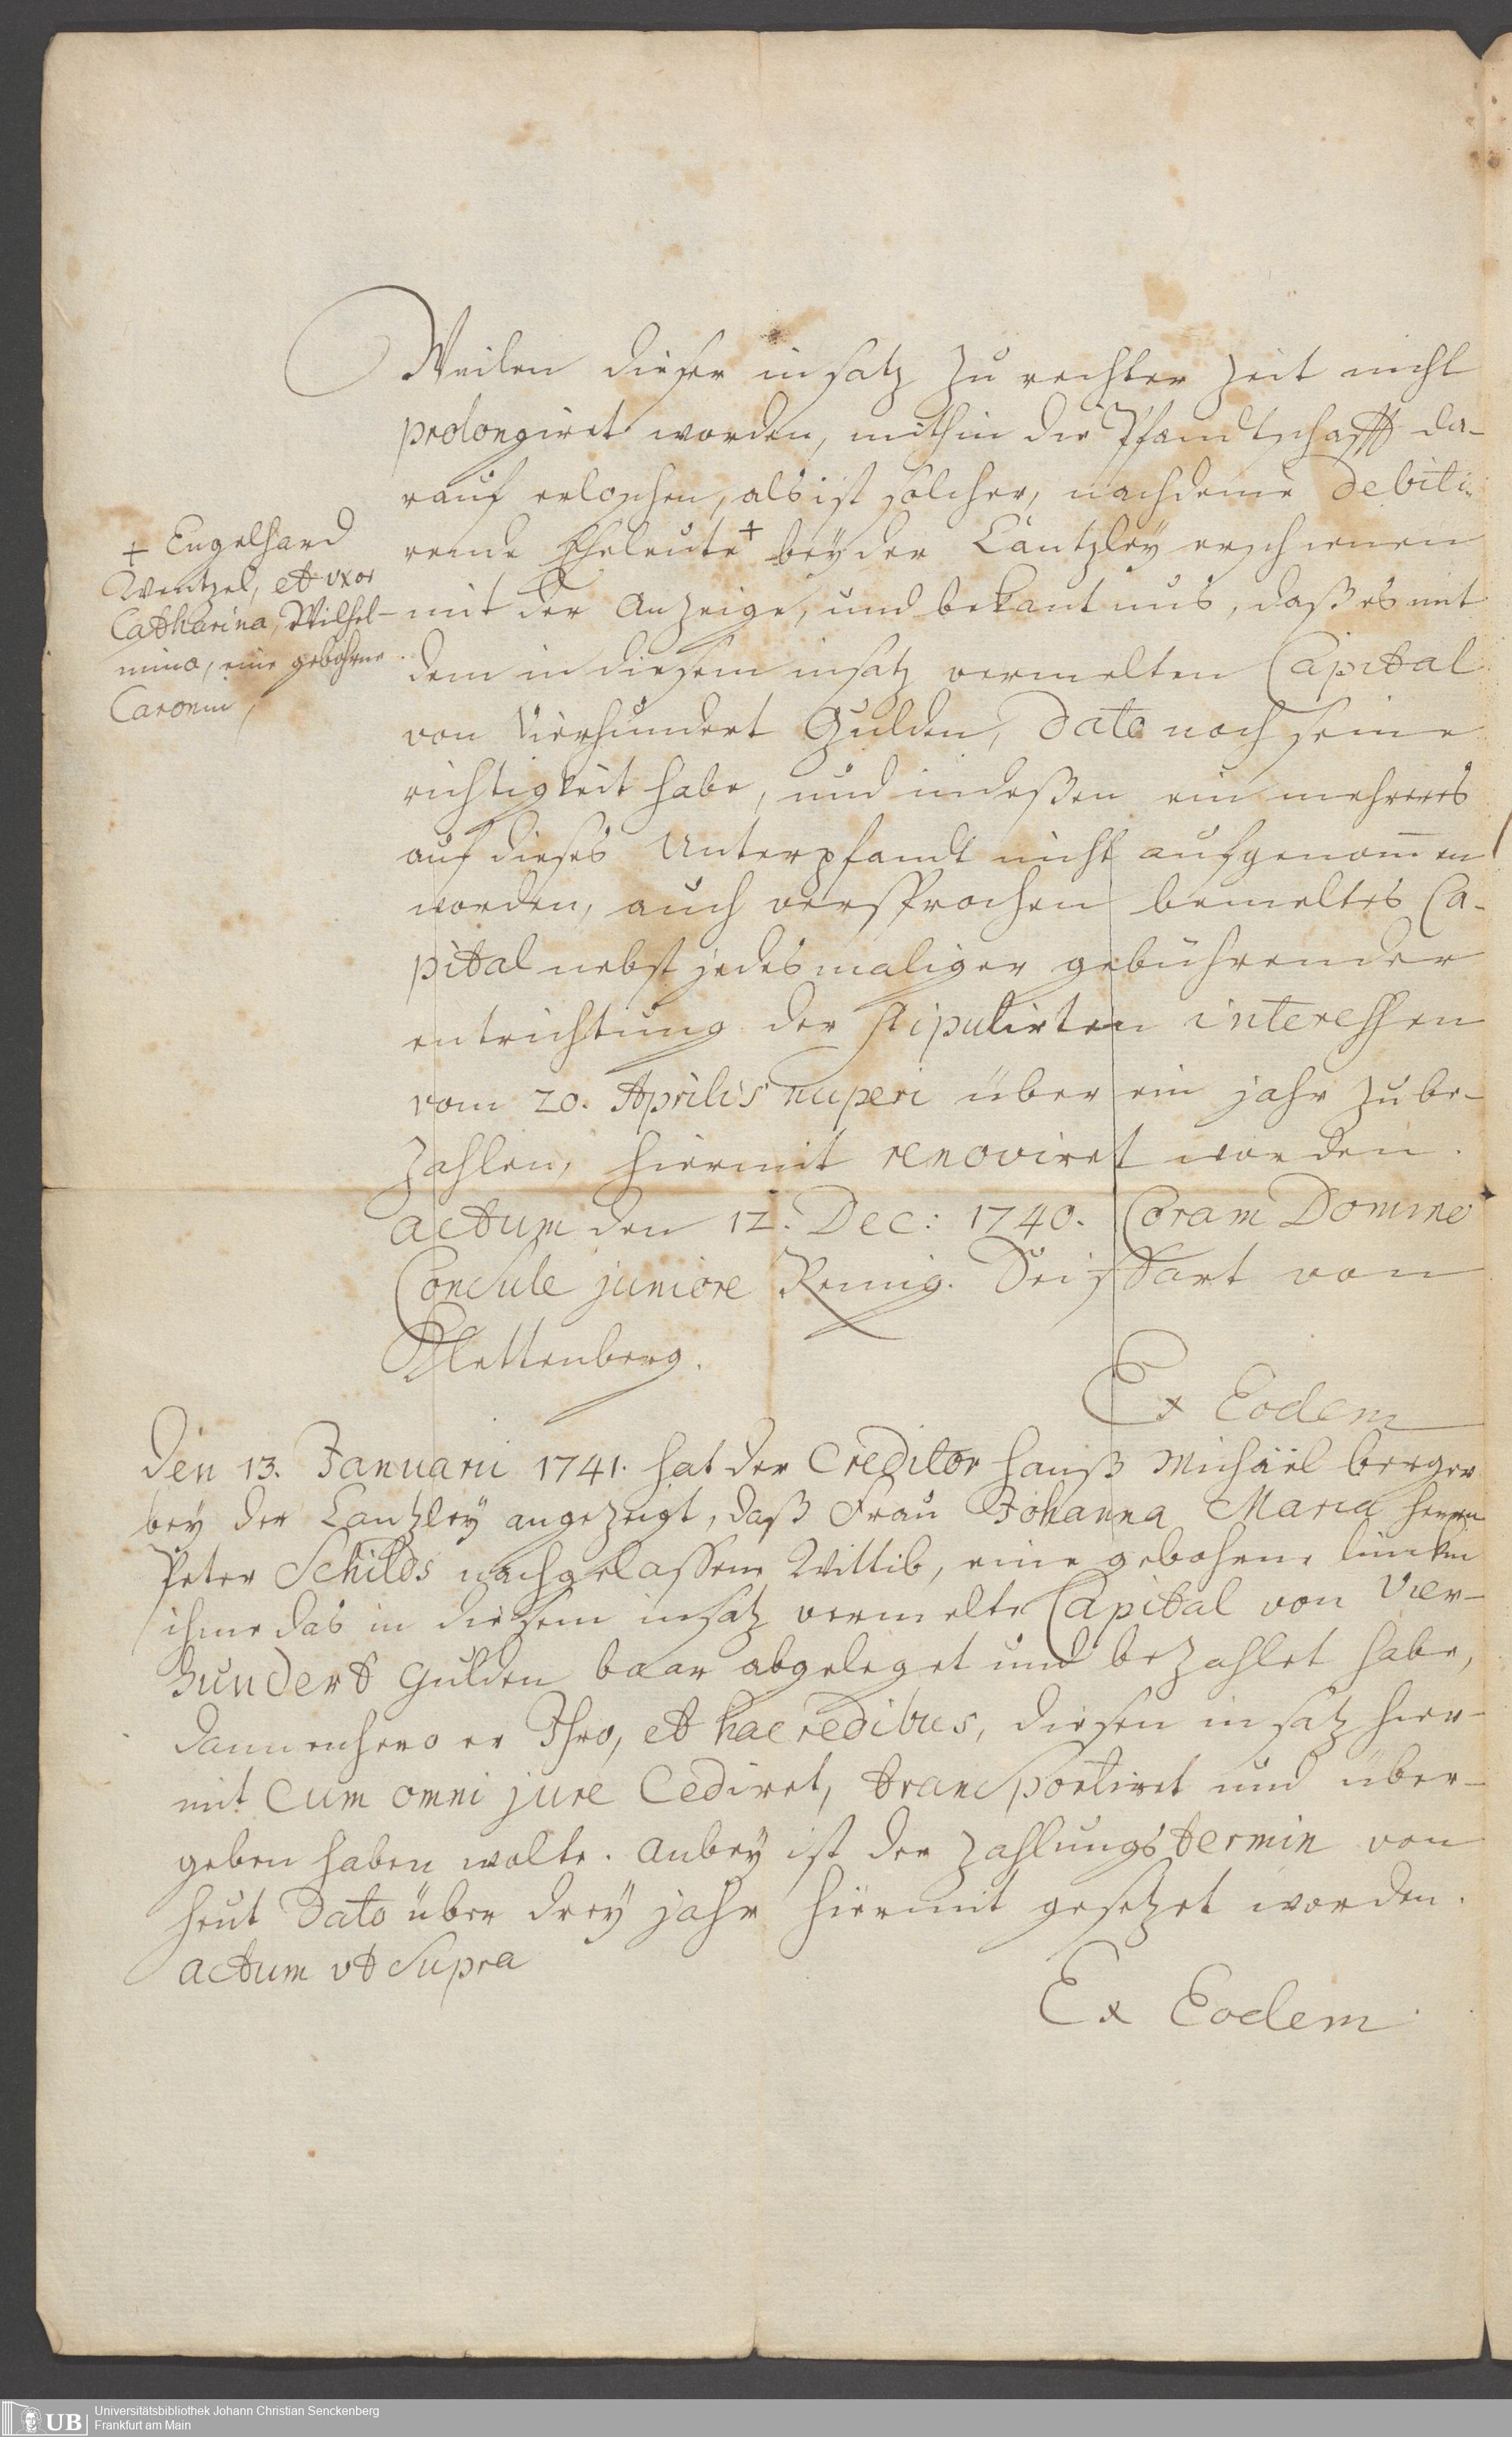 Weilen dieser insatz zu rechter zeit nicht
prolongiret worden, mithin die Pfandtschafft da-
rauf erloschen, als ist solcher, nachdeme debiti-
rende Eheleute + bey der Cantzley erschienen
mit der Anzeige, und bekantnus, daß es mit
dem in diesem insatz vermelten Capital
von Vierhundert Gulden, dato noch seine
richtigkeit habe, und indeßen ein mehreres
auf dieses Unterpfandt nicht aufgenom̄en
worden, auch versprochen bemeltes Ca-
pital nebst jedesmaliger gebührender
entrichtung der stipulirten interessen
vom 20. Aprilis nuperi über ein jahr zu be-
zahlen, hiermit renoviret worden.
actum den 12. Dec: 1740. Coram Domino
Consule juniore Remig. Seiffart von
Klettenberg.
Ex Eodem
+ Engelhard
Wentzel, et uxor
Catharina, Wilhel-
mina, eine gebohrne
Caronin,
Den 13. Januarii 1741. hat der Creditor Hanß Michäel Berger
bey der Cantzley angezeigt, daß Frau Johanna Maria Herrn
Peter Schilds nachgelassene Wittib, eine gebohrne
ihme das in diesem insatz vermelte Capital von Vier-
hundert Gulden baar abgeleget und bezahlet habe,
dannenhero er Ihro, et haeredibus, diesen insatz hier-
mit cum omni jure Cediret, transportiret und über-
geben haben wolte. Anbey ist der zahlungs termin von
heut Dato über drey jahr hiermit gesetzet worden.
actum ut Supra
Ex Eodem
UB
Universitätsbibliothek Johann Christian Senckenberg
Frankfurt am Main